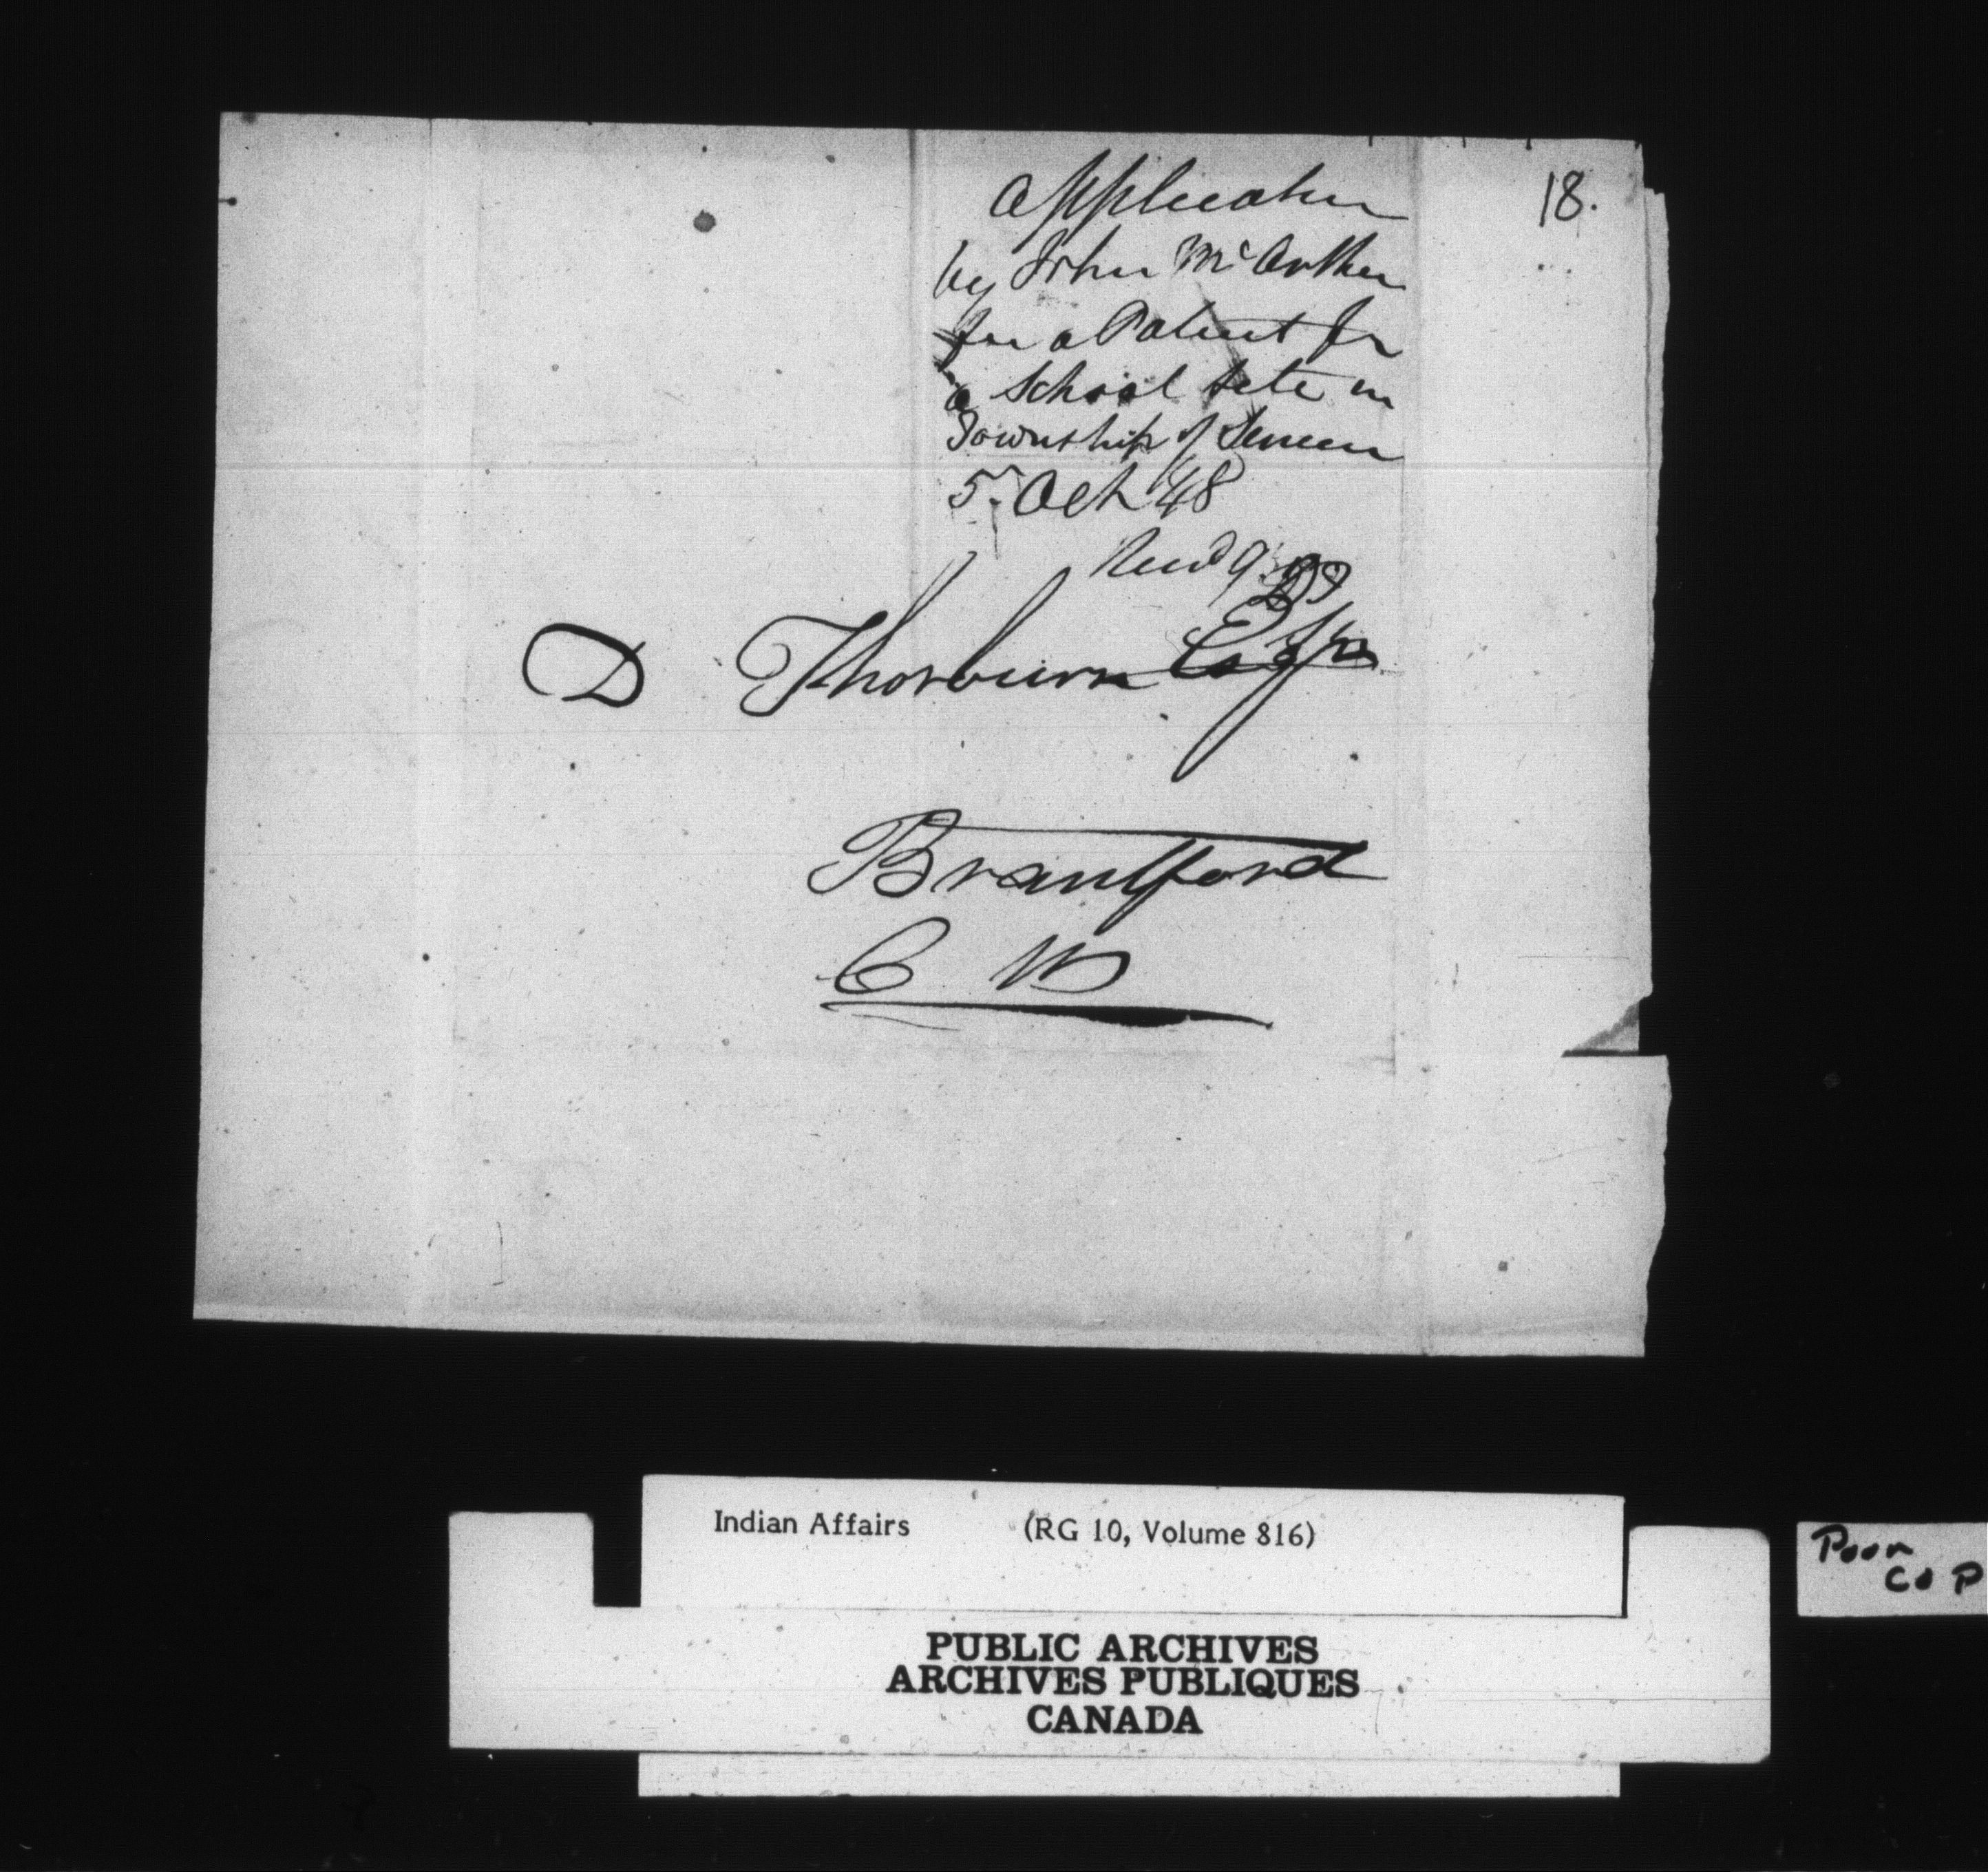 18.
Application
by John McArthur
for a Patent for
a School Site in
Township of Seneca
5. Oct 48
Recd 9.
D Thorburn Esqr
Brantford
C W
Indian Affairs (RG 10, Volume 816)
Poor
COP
PUBLIC ARCHIVES
ARCHIVES PUBLIQUES
CANADA